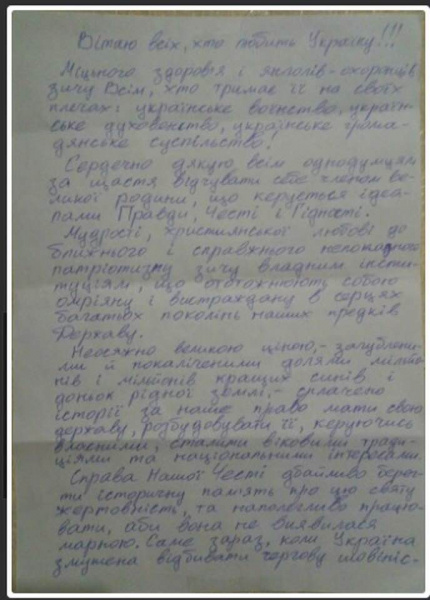 Вітаю всіх, хто любить Україну!!!
Міцного здоров'я і янголів-охоронців
зичу Всім, хто тримає її на своїх
плечах: українське воїнство, україн-
ське духовенство, українське грома-
дянське суспільство!
Сердечно дякую всім однодумцям
за щастя відчувати себе членом ве-
ликої родини, що керується ідеа-
лами Правди, Честі і Гідності.
Мудрості, християнської любові до
ближнього і справжнього непоказного
патріотизму зичу владним інсти-
туціям, що ототожнюють собою
омріяну і вистраждану в серцях
багатьох поколінь наших предків
Державу.
Неосяжно великою ціною, - загублени-
ми й покаліченими долями мільйо-
нів і мільйонів кращих синів і
доньок рідної землі, - сплачено
історії за наше право мати свою
державу, розбудовувати її, керуючись
власними, сталими віковими тради-
ціями та національними інтересами.
Справа Нашої Честі дбайливо берег-
ти історичну пам'ять про цю святу
жертовність, та наполегливо працю-
вати, аби вона не виявилася
марною. Саме зараз, коли Україна
змушена відбивати чергову шовініс-